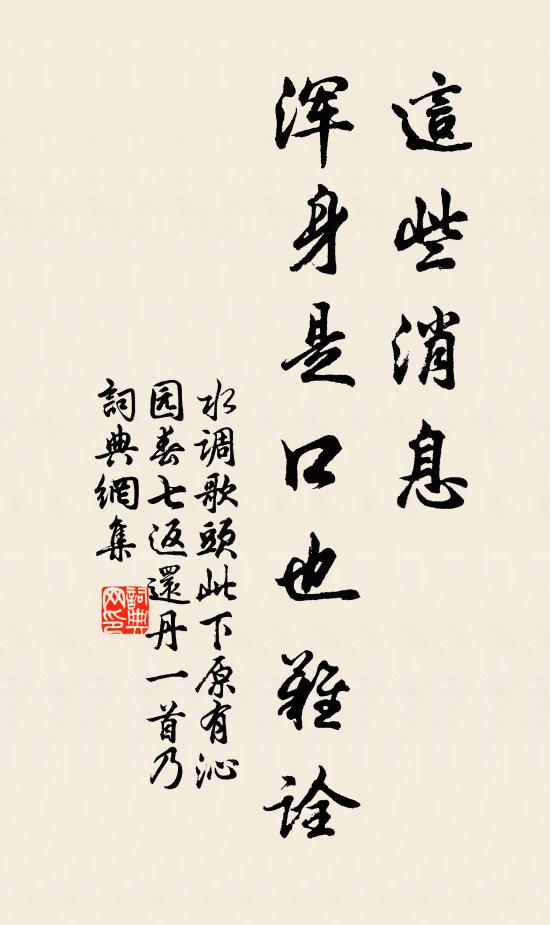 這些消息
浑身是口也難詮
水调歌頭此下原有沁
园春七返還丹一首乃
詞典網集
詞典网印